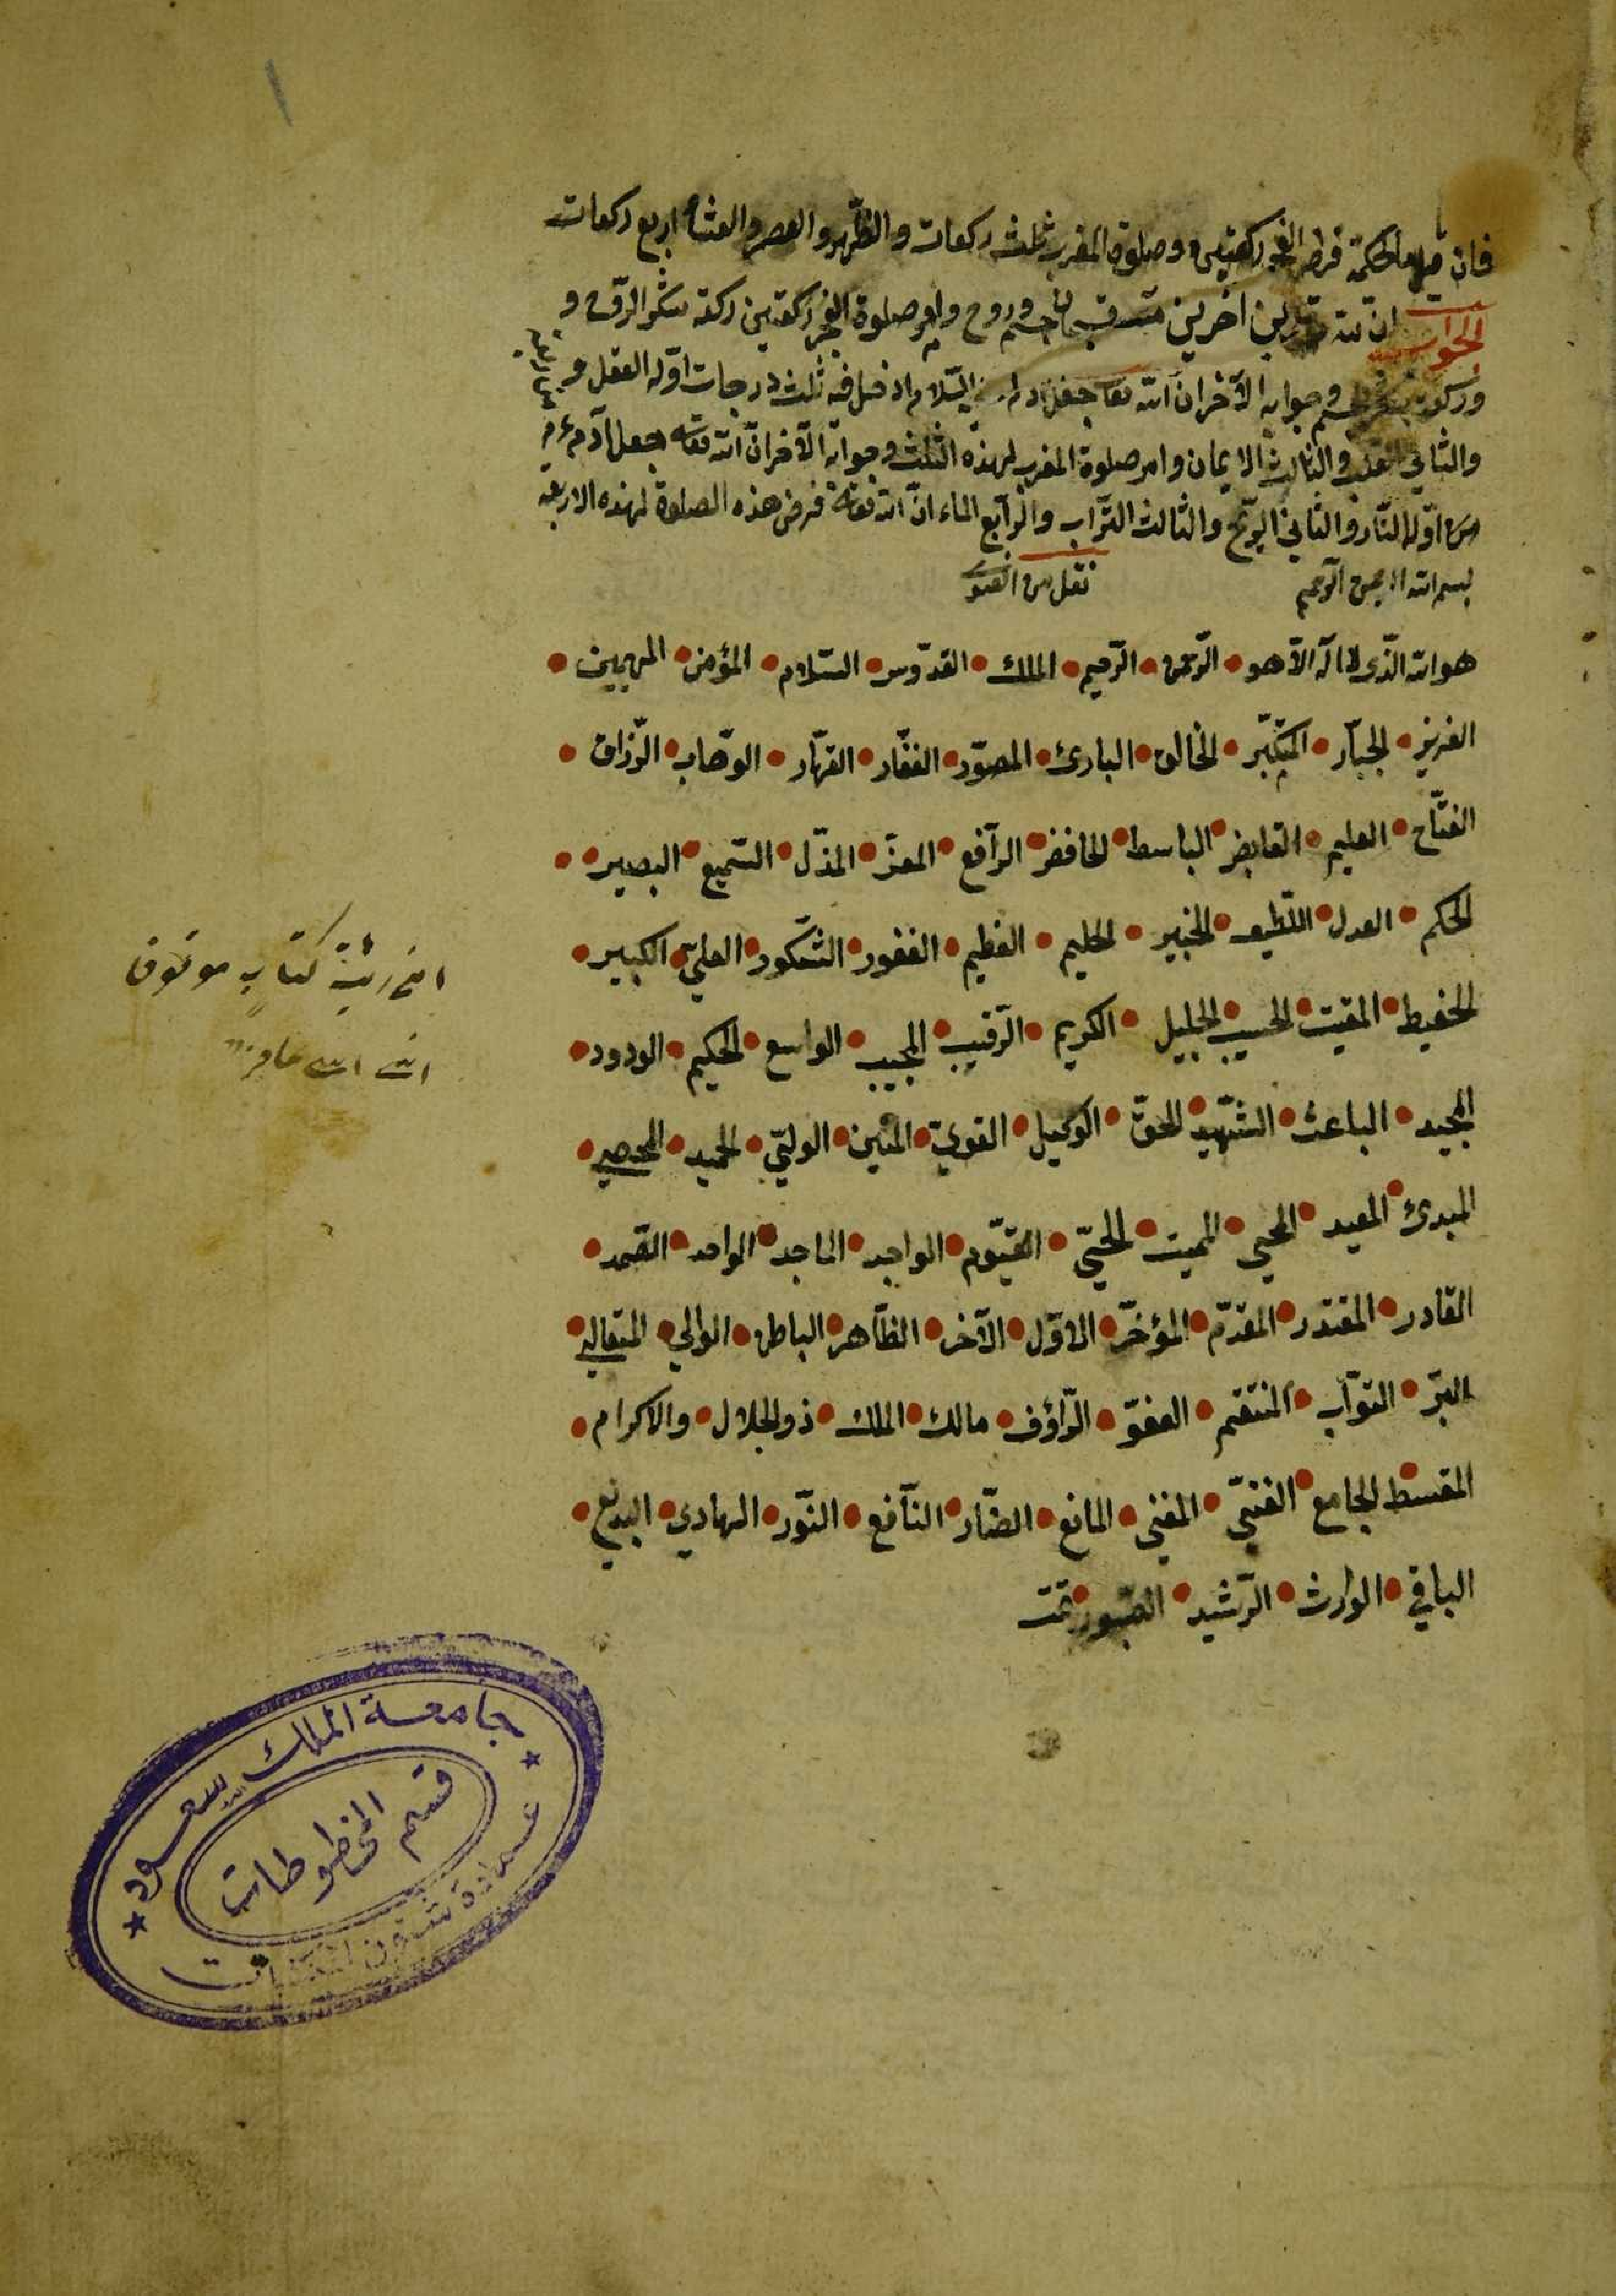 فان قيل ما الحكمة فرض الفجر ركعتين وصلوة المغرب ثلث ركعات والظّهر والعصر والعشاء اربع ركعات
الجواب ان لله اخرين جسم وروح وامر صلوة الفجر ركعتين ركعة شكر الرّوح و
وجوابه الآخر ان الله تعا جعل السّلام ادخل فيه ثلث درجات اوّله العقل و
والثاني والثالث الايمان وامر صلوة المغرب لهذه الثلث وجوابه الآخر انّ الله تعالى جعل آدم
من اوّلها النّار والثاني الرّيح والثالث التّراب والرّابع الماء انّ الله تعالى فرض هذه الصلوة لهذه الاربعة
بسم الله الرحمن الرّحيم نقل من
هو الله الّذى لا اله الّا هو • الرّحمن • الرّحيم • الملك • القدّوس • السّلام • المؤمن • المهيمن •
العزيز • الجبّار • المتكبّر • الخالق • البارئ • المصوّر • الغفّار • القهّار • الوهّاب • الرّزاق •
الفتّاح • العليم • القابض • الباسط • الخافض • الرّافع • المعزّ • المذلّ • السّميع • البصير •
الحكم • العدل • اللّطيف • الخبير • الحليم • العظيم • الغفور • الشّكور • العليّ • الكبير •
الحفيظ • المقيت • الحسيب • الجليل • الكريم • الرّقيب • المجيب • الواسع • الحكيم • الودود •
المجيد • الباعث • الشّهيد • الحقّ • الوكيل • القويّ • المتين • الوليّ • الحميد • المحصي •
المبدئ • المعيد • المحيي • المميت • الحيّ • القيّوم • الواجد • الماجد • الواحد • الصّمد •
القادر • المقتدر • المقدّم • المؤخّر • الاوّل • الآخر • الظّاهر • الباطن • الوالي • المتعالي •
البرّ • التوّاب • المنتقم • العفوّ • الرّاؤف • مالك • الملك • ذو الجلال • والاكرام •
المقسط • الجامع • الغنيّ • المغني • المانع • الضّار • النّافع • النّور • الهادي • البديع •
الباقي • الوارث • الرّشيد • الصّبور • تمّت
كتاب موقوف
جامعة الملك سعود
قسم المخطوطات
عمادة شئون المكتبات